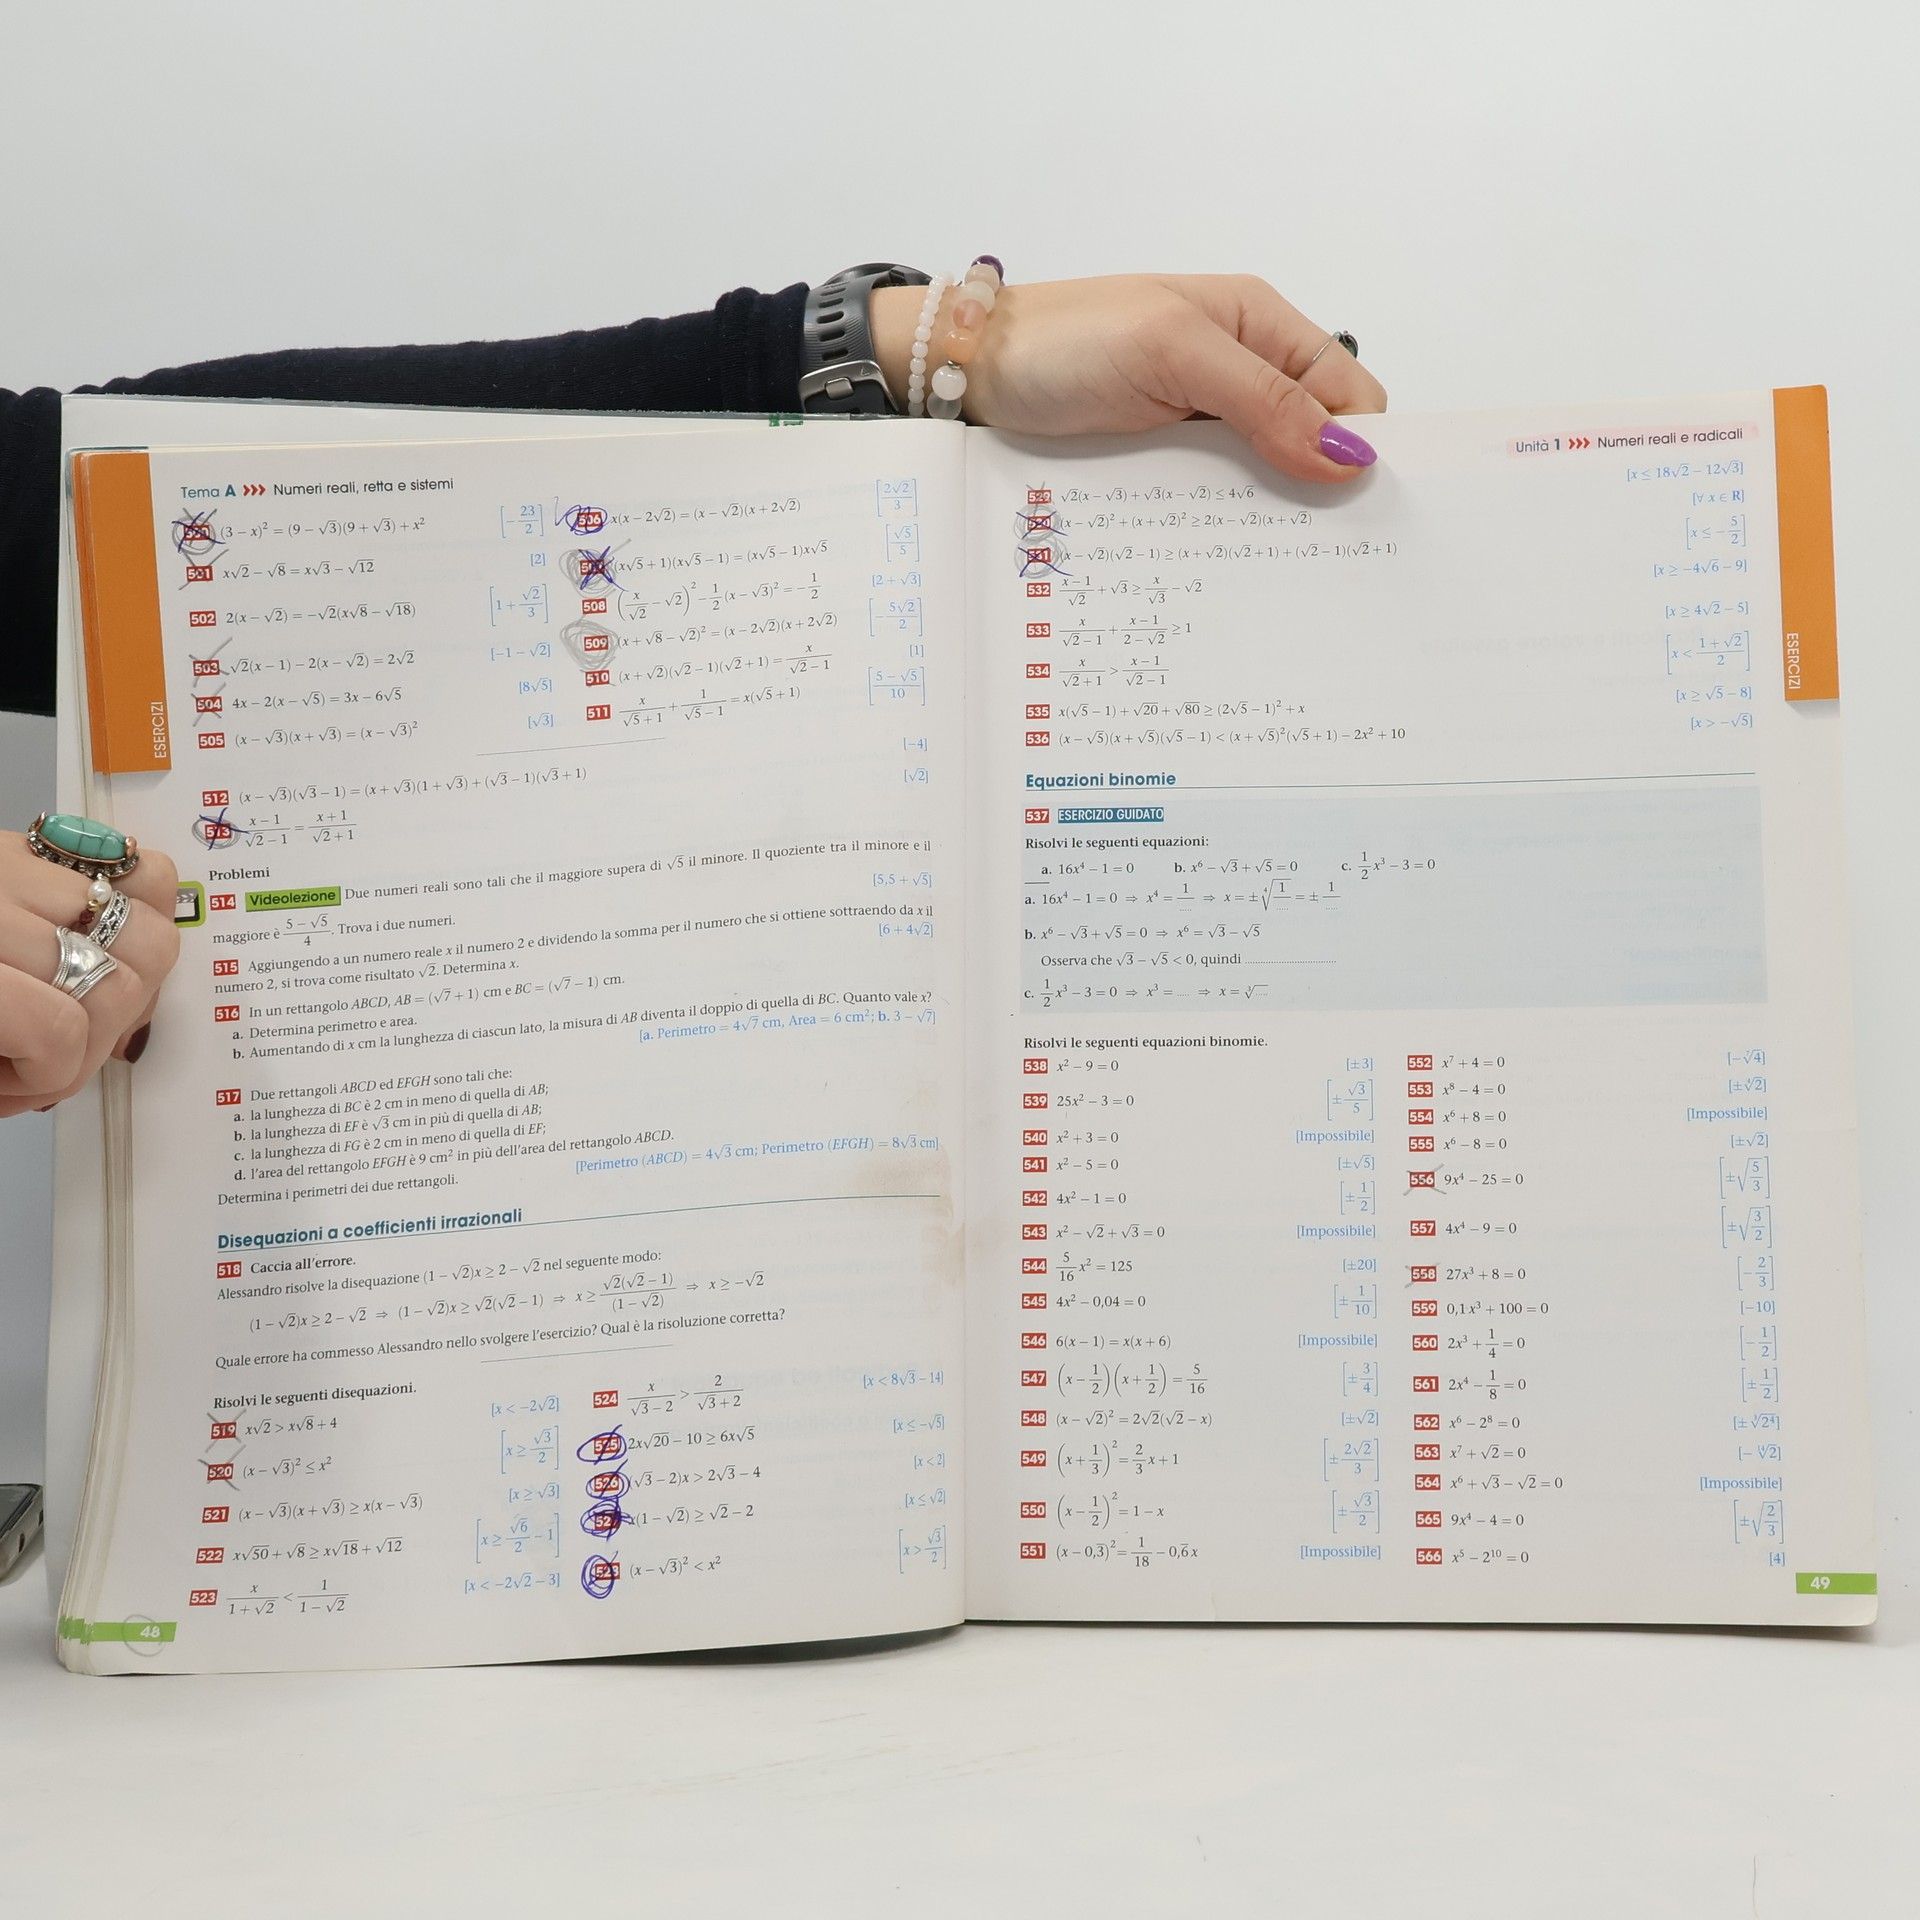 Tema A >>> Numeri reali, retta e sistemi
ESERCIZI
500 (3 − x)² = (9 − √3)(9 + √3) + x² [−23/2]
501 x√2 − √8 = x√3 − √12 [2]
502 2(x − √2) = −√2(x√8 − √18) [1 + √2/3]
503 √2(x − 1) − 2(x − √2) = 2√2 [−1 − √2]
504 4x − 2(x − √5) = 3x − 6√5 [8√5]
505 (x − √3)(x + √3) = (x − √3)² [√3]
506 x(x − 2√2) = (x − √2)(x + 2√2) [2√2/3]
(x√5 + 1)(x√5 − 1) = (x√5 − 1)x√5 [√5/5]
508 (x/√2 − √2)² − 1/2(x − √3)² = −1/2 [2 + √3]
509 (x + √8 − √2)² = (x − 2√2)(x + 2√2) [−5√2/2]
510 (x + √2)(√2 − 1)(√2 + 1) = x/(√2 − 1) [1]
511 x/(√5 + 1) + 1/(√5 − 1) = x(√5 + 1) [(5 − √5)/10]
512 (x − √3)(√3 − 1) = (x + √3)(1 + √3) + (√3 − 1)(√3 + 1) [−4]
513 (x − 1)/(√2 − 1) = (x + 1)/(√2 + 1) [√2]
Problemi
514 Videolezione Due numeri reali sono tali che il maggiore supera di √5 il minore. Il quoziente tra il minore e il
maggiore è (5 − √5)/4. Trova i due numeri. [5,5 + √5]
515 Aggiungendo a un numero reale x il numero 2 e dividendo la somma per il numero che si ottiene sottraendo da x il
numero 2, si trova come risultato √2. Determina x. [6 + 4√2]
516 In un rettangolo ABCD, AB = (√7 + 1) cm e BC = (√7 − 1) cm.
a. Determina perimetro e area.
b. Aumentando di x cm la lunghezza di ciascun lato, la misura di AB diventa il doppio di quella di BC. Quanto vale x?
[a. Perimetro = 4√7 cm, Area = 6 cm²; b. 3 − √7]
517 Due rettangoli ABCD ed EFGH sono tali che:
a. la lunghezza di BC è 2 cm in meno di quella di AB;
b. la lunghezza di EF è √3 cm in più di quella di AB;
c. la lunghezza di FG è 2 cm in meno di quella di EF;
d. l'area del rettangolo EFGH è 9 cm² in più dell'area del rettangolo ABCD.
Determina i perimetri dei due rettangoli. [Perimetro (ABCD) = 4√3 cm; Perimetro (EFGH) = 8√3 cm]
Disequazioni a coefficienti irrazionali
518 Caccia all'errore.
Alessandro risolve la disequazione (1 − √2)x ≥ 2 − √2 nel seguente modo:
(1 − √2)x ≥ 2 − √2 ⇒ (1 − √2)x ≥ √2(√2 − 1) ⇒ x ≥ √2(√2 − 1)/(1 − √2) ⇒ x ≥ −√2
Quale errore ha commesso Alessandro nello svolgere l'esercizio? Qual è la risoluzione corretta?
Risolvi le seguenti disequazioni.
519 x√2 > x√8 + 4 [x < −2√2]
520 (x − √3)² ≤ x² [x ≥ √3/2]
521 (x − √3)(x + √3) ≥ x(x − √3) [x ≥ √3]
522 x√50 + √8 ≥ x√18 + √12 [x ≥ √6/2 − 1]
523 x/(1 + √2) < 1/(1 − √2) [x < −2√2 − 3]
524 x/(√3 − 2) > 2/(√3 + 2) [x < 8√3 − 14]
525 2x√20 − 10 ≥ 6x√5 [x ≤ −√5]
526 (√3 − 2)x > 2√3 − 4 [x < 2]
527 x(1 − √2) ≥ √2 − 2 [x ≤ √2]
528 (x − √3)² < x² [x > √3/2]
48
Unità 1 >>> Numeri reali e radicali
ESERCIZI
529 √2(x − √3) + √3(x − √2) ≤ 4√6 [x ≤ 18√2 − 12√3]
530 (x − √2)² + (x + √2)² ≥ 2(x − √2)(x + √2) [∀ x ∈ R]
531 (x − √2)(√2 − 1) ≥ (x + √2)(√2 + 1) + (√2 − 1)(√2 + 1) [x ≤ −5/2]
532 (x − 1)/√2 + √3 ≥ x/√3 − √2 [x ≥ −4√6 − 9]
533 x/(√2 − 1) + (x − 1)/(2 − √2) ≥ 1 [x ≥ 4√2 − 5]
534 x/(√2 + 1) > (x − 1)/(√2 − 1) [x < (1 + √2)/2]
535 x(√5 − 1) + √20 + √80 ≥ (2√5 − 1)² + x [x ≥ √5 − 8]
536 (x − √5)(x + √5)(√5 − 1) < (x + √5)²(√5 + 1) − 2x² + 10 [x > −√5]
Equazioni binomie
537 ESERCIZIO GUIDATO
Risolvi le seguenti equazioni:
a. 16x⁴ − 1 = 0 b. x⁶ − √3 + √5 = 0 c. 1/2 x³ − 3 = 0
a. 16x⁴ − 1 = 0 ⇒ x⁴ = 1/..... ⇒ x = ±⁴√(1/.....) = ± 1/.....
b. x⁶ − √3 + √5 = 0 ⇒ x⁶ = √3 − √5
Osserva che √3 − √5 < 0, quindi ..............................
c. 1/2 x³ − 3 = 0 ⇒ x³ = ..... ⇒ x = ³√.....
Risolvi le seguenti equazioni binomie.
538 x² − 9 = 0 [±3]
539 25x² − 3 = 0 [±√3/5]
540 x² + 3 = 0 [Impossibile]
541 x² − 5 = 0 [±√5]
542 4x² − 1 = 0 [±1/2]
543 x² − √2 + √3 = 0 [Impossibile]
544 5/16 x² = 125 [±20]
545 4x² − 0,04 = 0 [±1/10]
546 6(x − 1) = x(x + 6) [Impossibile]
547 (x − 1/2)(x + 1/2) = 5/16 [±3/4]
548 (x − √2)² = 2√2(√2 − x) [±√2]
549 (x + 1/3)² = 2/3 x + 1 [±2√2/3]
550 (x − 1/2)² = 1 − x [±√3/2]
551 (x − 0,3̅)² = 1/18 − 0,6̅x [Impossibile]
552 x⁷ + 4 = 0 [−⁷√4]
553 x⁸ − 4 = 0 [±⁴√2]
554 x⁶ + 8 = 0 [Impossibile]
555 x⁶ − 8 = 0 [±√2]
556 9x⁴ − 25 = 0 [±√(5/3)]
557 4x⁴ − 9 = 0 [±√(3/2)]
558 27x³ + 8 = 0 [−2/3]
559 0,1x³ + 100 = 0 [−10]
560 2x³ + 1/4 = 0 [−1/2]
561 2x⁴ − 1/8 = 0 [±1/2]
562 x⁶ − 2⁸ = 0 [±³√2⁴]
563 x⁷ + √2 = 0 [−¹⁴√2]
564 x⁶ + √3 − √2 = 0 [Impossibile]
565 9x⁴ − 4 = 0 [±√(2/3)]
566 x⁵ − 2¹⁰ = 0 [4]
49